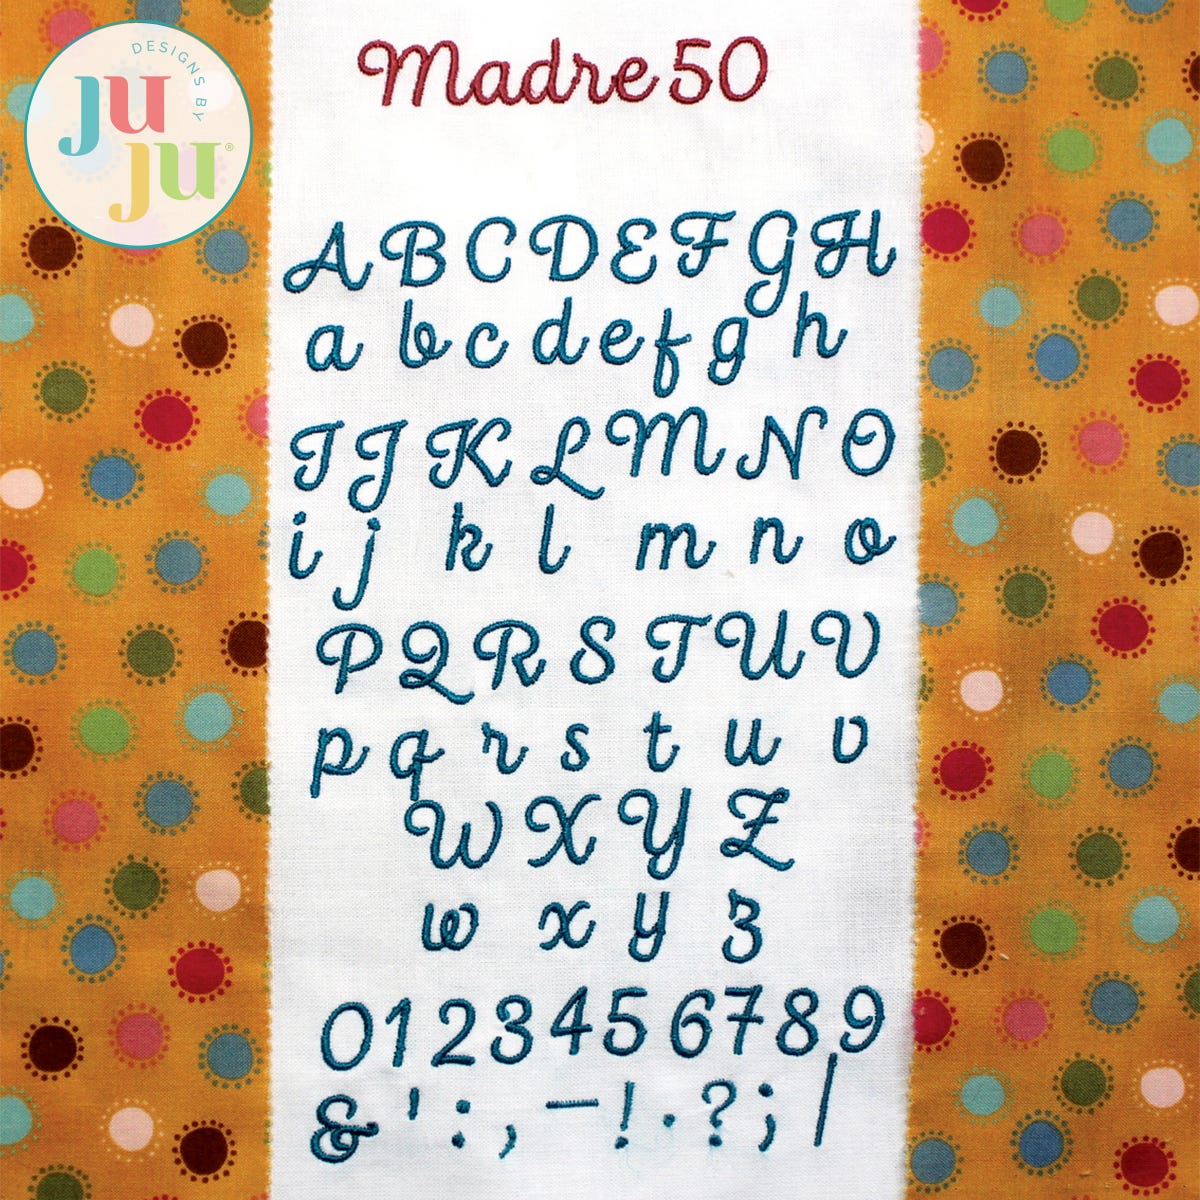 DESIGNS BY
JU
JU®
Madre 50
A B C D E F G H
a b c d e f g h
I J K L M N O
i j k l m n o
P Q R S T U V
p q r s t u v
W X Y Z
w x y z
0 1 2 3 4 5 6 7 8 9
& ' : , - ! . ? ; /